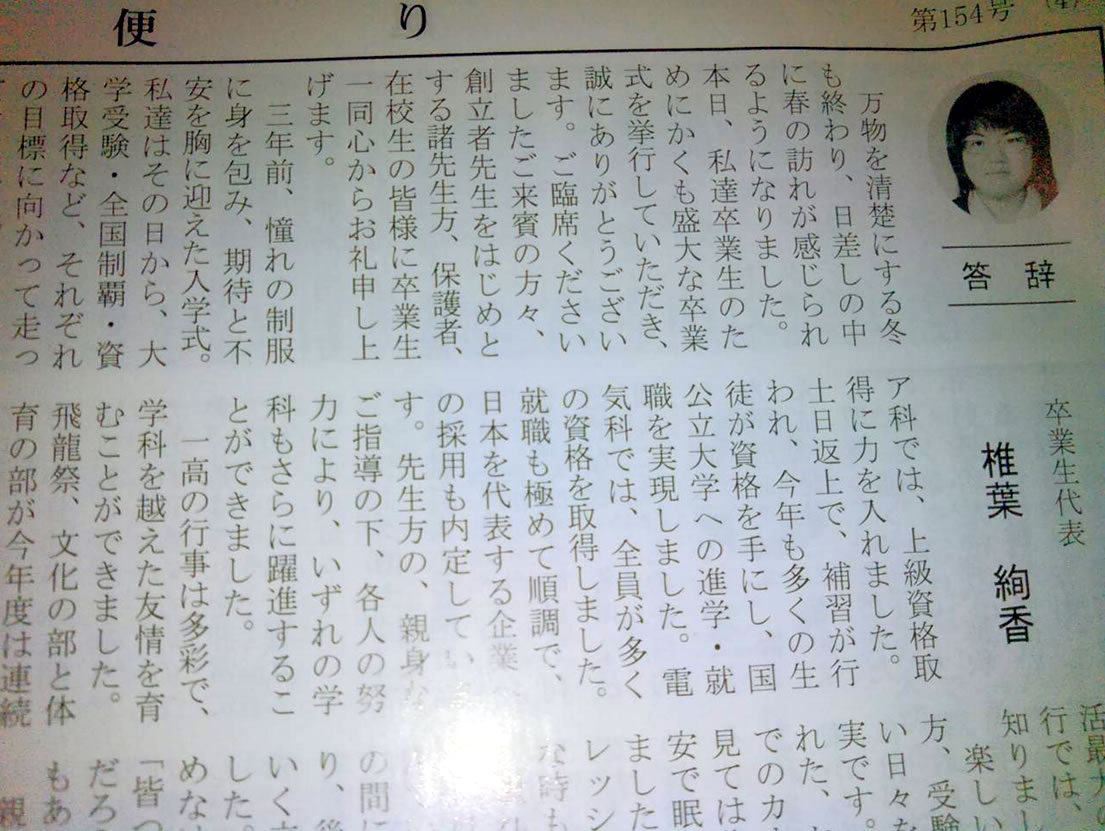 便り
第154号
(4)
答辞
卒業生代表
椎葉 絢香
万物を清楚にする冬
も終わり、日差しの中
に春の訪れが感じられ
るようになりました。
本日、私達卒業生のた
めにかくも盛大な卒業
式を挙行していただき、
誠にありがとうござい
ます。ご臨席ください
ましたご来賓の方々、
創立者先生をはじめと
する諸先生方、保護者、
在校生の皆様に卒業生
一同心からお礼申し上
げます。
三年前、憧れの制服
に身を包み、期待と不
安を胸に迎えた入学式。
私達はその日から、大
学受験・全国制覇・資
格取得など、それぞれ
の目標に向かって走っ
ア科では、上級資格取
得に力を入れました。
土日返上で、補習が行
われ、今年も多くの生
徒が資格を手にし、国
公立大学への進学・就
職を実現しました。電
気科では、全員が多く
の資格を取得しました。
就職も極めて順調で、
日本を代表する企業
の採用も内定してい
す。先生方の、親身な
ご指導の下、各人の努
力により、いずれの学
科もさらに躍進するこ
とができました。
一高の行事は多彩で、
学科を越えた友情を育
むことができました。
飛龍祭、文化の部と体
育の部が今年度は連続
活最大の
行では、
知りまし
楽しい
方、受験
い日々な
実です。
れた、
でのカ
見ては
安で眠
ました
レッシ
な時も
の間に
り、後
いく
した。
めな
「皆つ
だろ
もあ
親